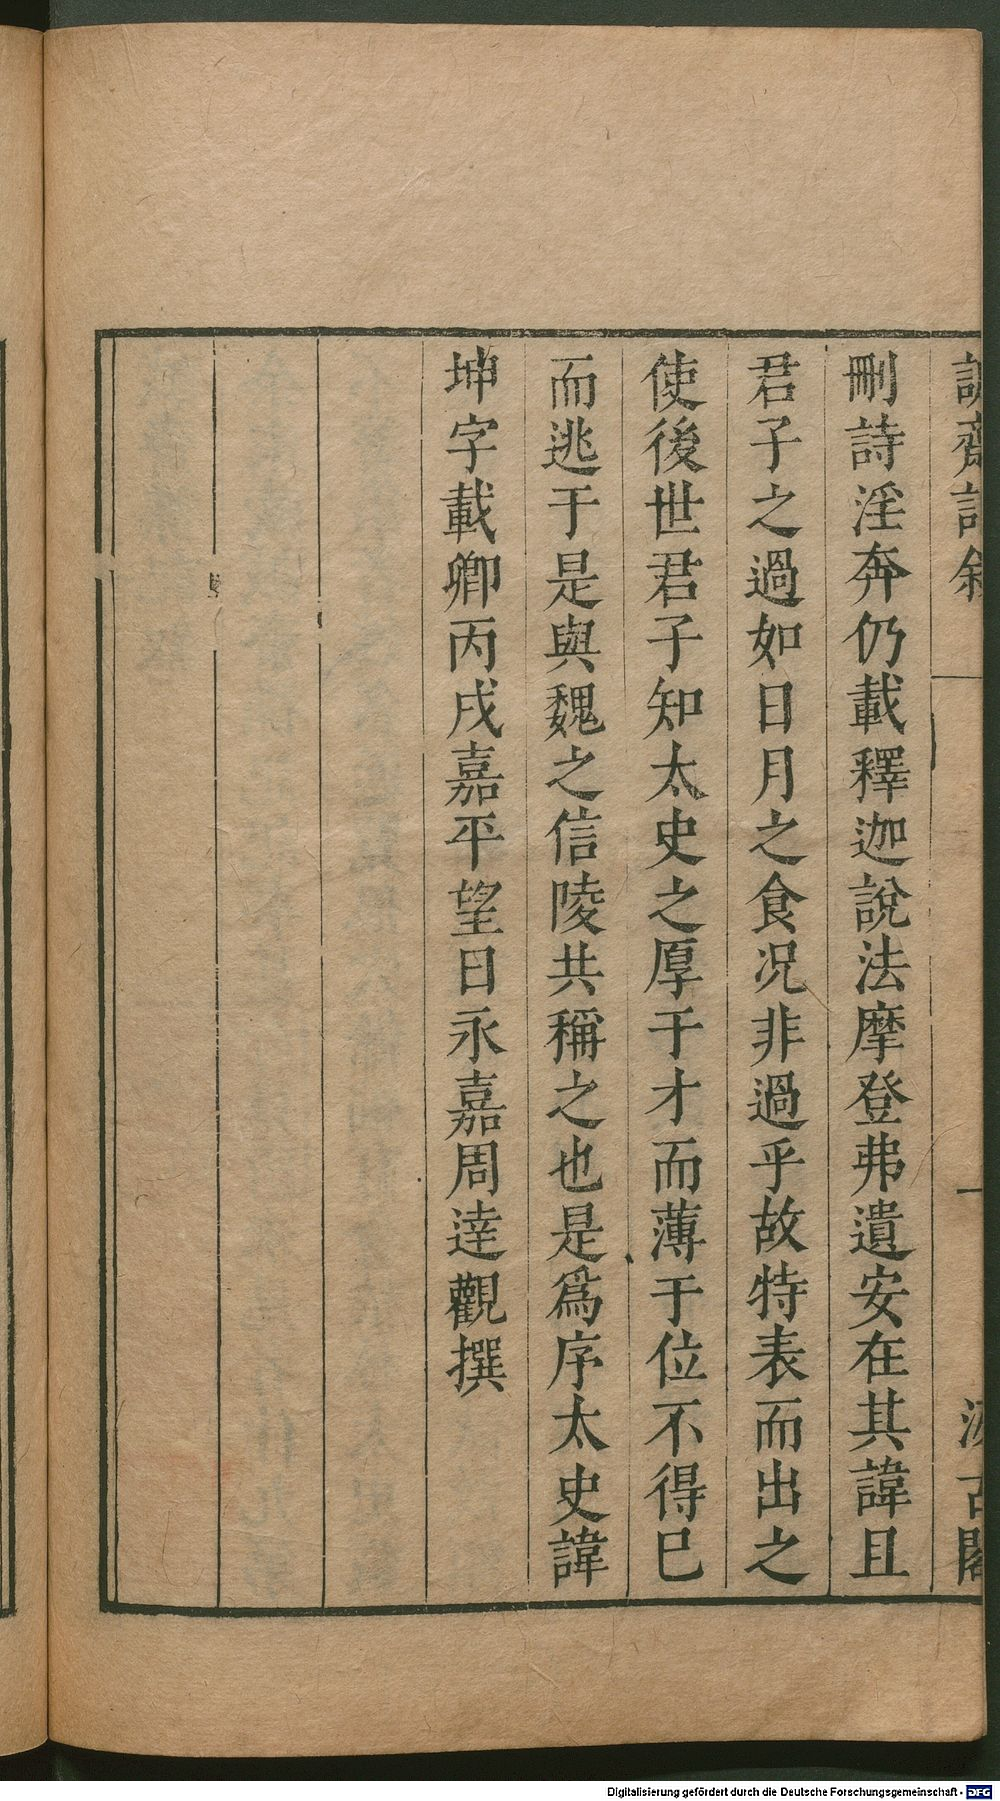 詞叙 一 古閣
刪詩淫奔仍載釋迦說法摩登弗遺安在其諱且
君子之過如日月之食况非過乎故特表而出之
使後世君子知太史之厚于才而薄于位不得已
而逃于是與魏之信陵共稱之也是爲序太史諱
坤字載卿丙戌嘉平望日永嘉周達觀撰
Digitalisierung gefördert durch die Deutsche Forschungsgemeinschaft - DFG